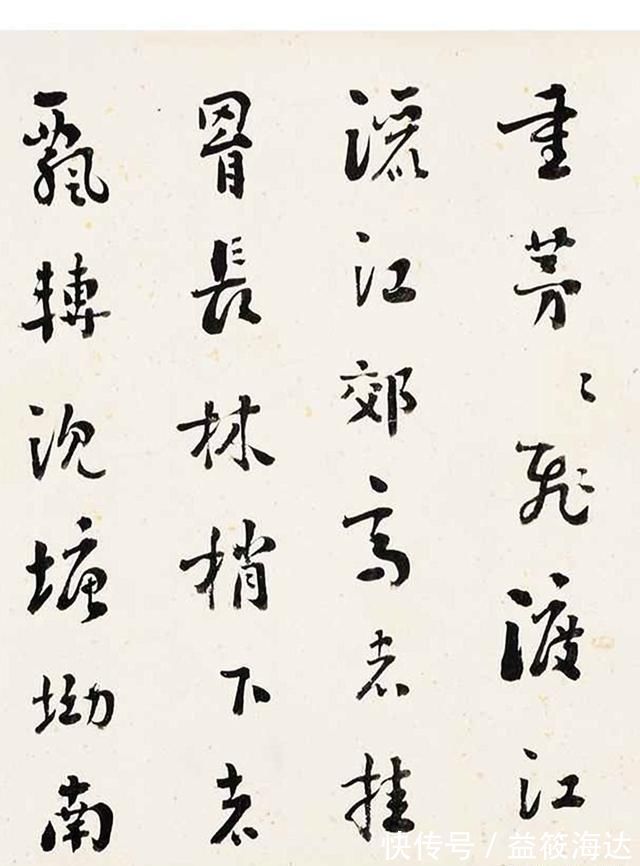 重茅〻飛渡江
灑江郊高者挂
罥長林梢下者
飄轉沉塘坳南
快传号 / 益筱海达